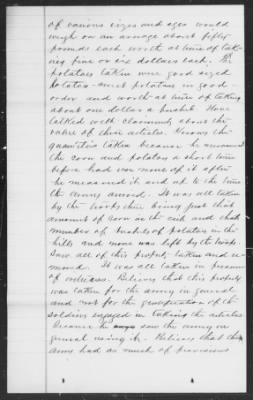 of various sizes and ages would
weigh on an average about fifty
pounds each worth at time of tak-
ing five or six dollars each. The
potatoes taken were good sized
potatoes - sweet potatoes in good
order and worth at time of taking
about one dollar a bushel. Have
talked with claimants about the
value of their articles. Knows the
quantities taken because he measured
the corn and potatoes a short time
before had used none of it after
he measured it and up to the time
the army arrived. It was all taken
by the troops there being just that
amount of corn in the crib and that
number of bushels of potatoes in the
hills and none was left by the troops.
Saw all of this property taken and re-
moved. It was all taken in presence
of officers. Believes that this property
was taken for the army in general
and not for the gratification of the
soldiers engaged in taking the articles
Because he saw the army in
general using it. Believes that the
army had as much of provisions